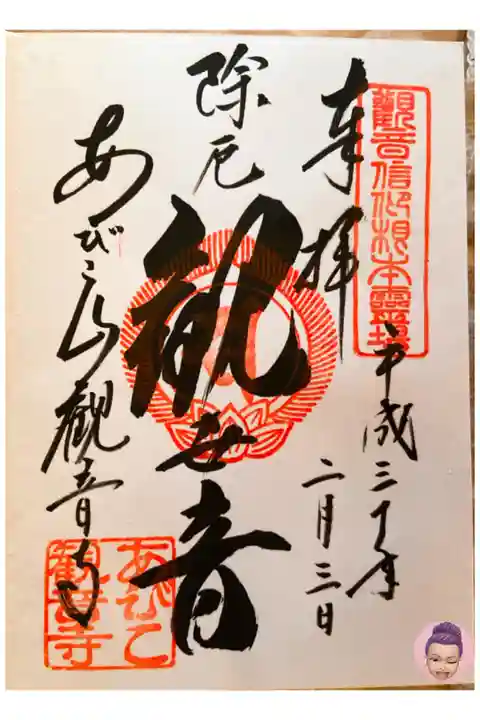 觀音信仰根本靈場
奉拝
平成三十年
二月三日
除厄
観世音
あびこ山観音寺
あびこ
観音寺